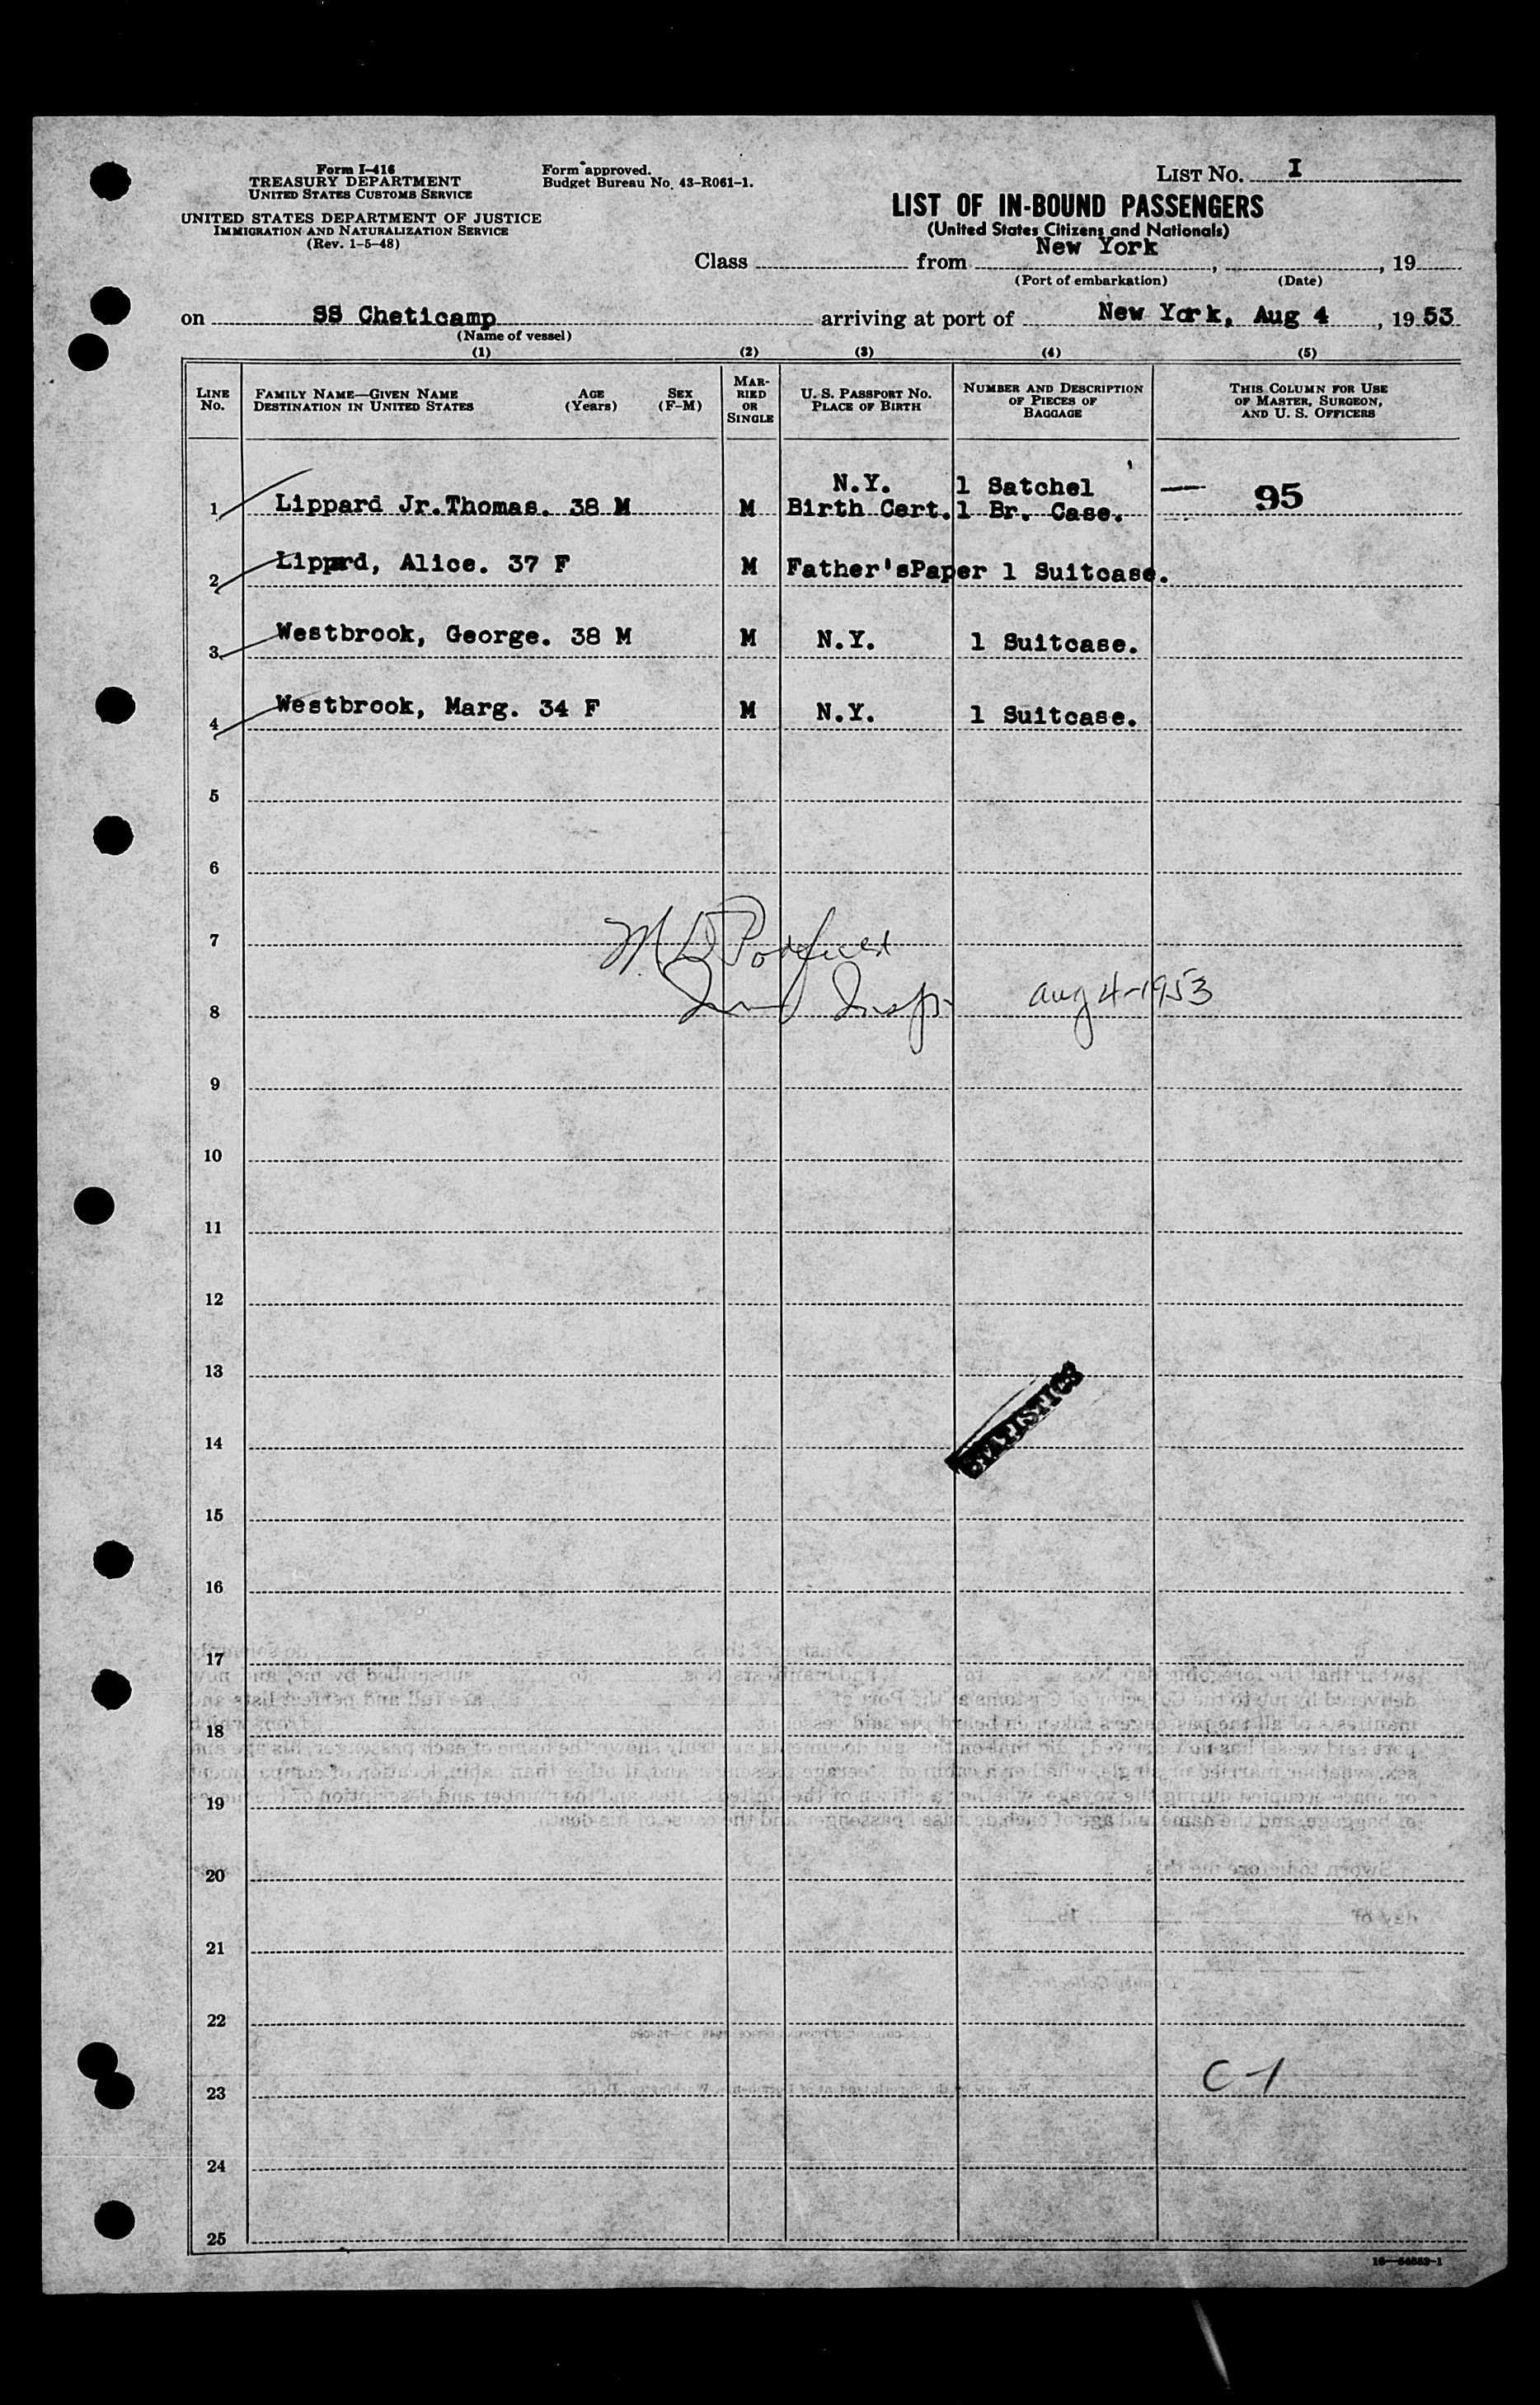 Form I-416
TREASURY DEPARTMENT
UNITED STATES CUSTOMS SERVICE
UNITED STATES DEPARTMENT OF JUSTICE
IMMIGRATION AND NATURALIZATION SERVICE
(Rev. 1-5-48)
Form approved.
Budget Bureau No. 43-R061-1.
LIST NO. I
LIST OF IN-BOUND PASSENGERS
(United States Citizens and Nationals)
Class from New York, , 19
(Port of embarkation) (Date)
on SS Cheticamp arriving at port of New York, Aug 4, 1953
(Name of vessel)
(1) (2) (3) (4) (5)
LINE NO. FAMILY NAME—GIVEN NAME DESTINATION IN UNITED STATES AGE (Years) SEX (F-M) MARRIED OR SINGLE U. S. PASSPORT NO. PLACE OF BIRTH NUMBER AND DESCRIPTION OF PIECES OF BAGGAGE THIS COLUMN FOR USE OF MASTER, SURGEON, AND U. S. OFFICERS
N.Y. 1 Satchel
1 Lippard Jr.Thomas. 38 M M Birth Cert. 1 Br. Case. — 95
2 Lippard, Alice. 37 F M Father'sPaper 1 Suitcase.
3 Westbrook, George. 38 M M N.Y. 1 Suitcase.
4 Westbrook, Marg. 34 F M N.Y. 1 Suitcase.
5
6
7 M
8 Insp Aug 4-1953
9
10
11
12
13
STATISTICS
14
15
16
17
18
19
20
21
22
C-1
23
24
25